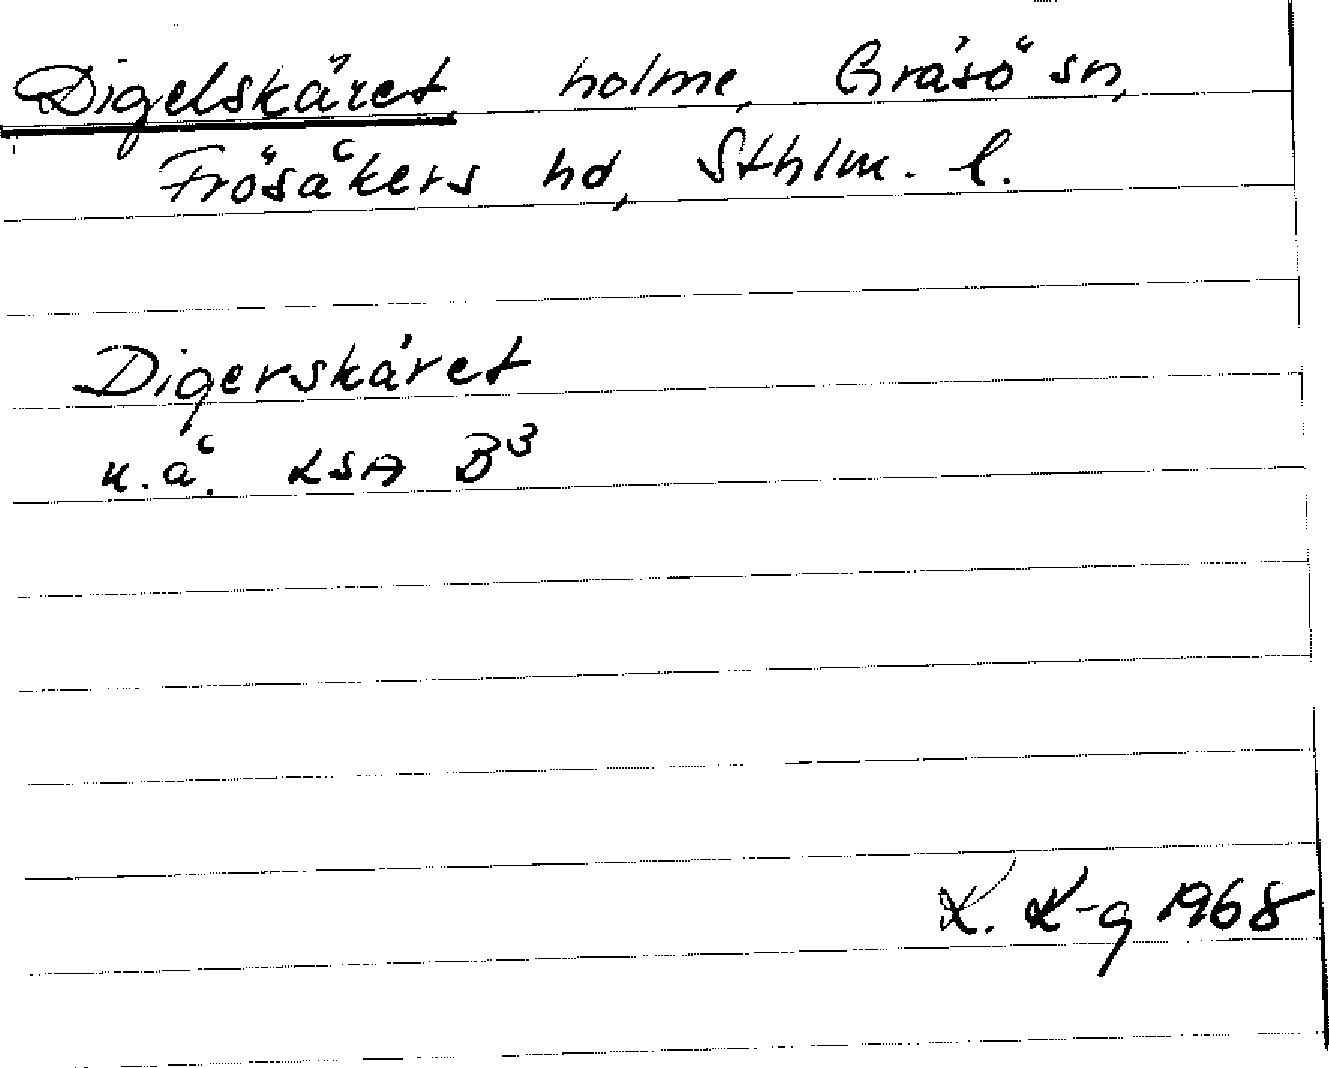 Digelskäret holme, Gräsö sn,
Frösåkers hd, Sthlm. l.
Digerskäret
u.å. LSA B3
K. K-g 1968